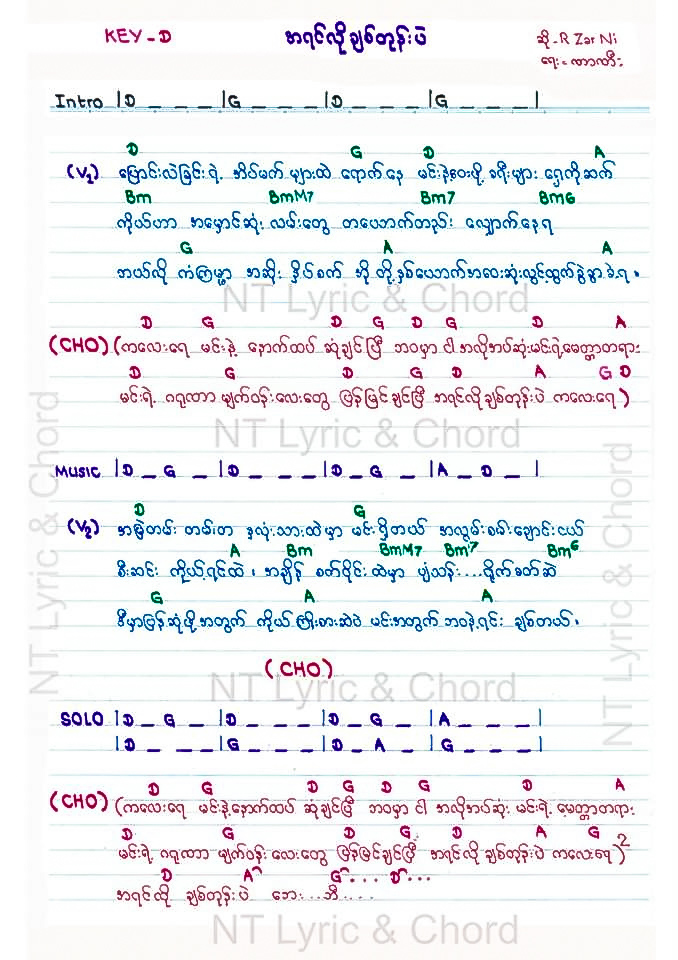 KEY - D
အရင်လိုချစ်တုန်းပဲ
ဆို - R Zar Ni
ရေး - ကာဏီ
Intro |D _ _ _ |G _ _ _ |D _ _ _ |G _ _ _ |
D G D A
(V₁) ပြောင်းလဲခြင်းရဲ့ အိပ်မက်များထဲ ရောက်နေ မင်းနဲ့ဝေးဖို့ ခရီးများ ရှေ့ကိုဆက်
Bm BmM7 Bm7 Bm6
ကိုယ်ဟာ အမှောင်ဆုံး လမ်းတွေ တယောက်တည်း လျှောက်နေရ
G A A
ဘယ်လို ကံကြမ္မာ အဆိုး ဒိုင်ခွက် အို တို့နှစ်ယောက်အဝေးဆုံးလွင့်ထွက်ခွဲခွာခဲ့ရ ။
NT Lyric & Chord
D G D G D G D A
(CHO) (ကလေးရေ မင်းနဲ့ နောက်ထပ် ဆုံချင်ပြီ ဘဝမှာ ငါ အလိုအပ်ဆုံး မင်းရဲ့မေတ္တာတရား
D G D G D A G D
မင်းရဲ့ ဂရုဏာ မျက်ဝန်းလေးတွေ မြန်မြင်ချင်ပြီ အရင်လိုချစ်တုန်းပဲ ကလေးရေ)
NT Lyric & Chord
NT Lyric & Chord
NT Lyric & Chord
MUSIC |D _ G _ |D _ _ _ |D _ G _ |A _ D _ |
D G
(V₂) အမြဲတမ်း တမ်းတ နှလုံးသားထဲမှာ မင်းရှိတယ် အလွမ်းစမ်းချောင်းငယ်
A Bm BmM7 Bm7 Bm6
စီးဆင်း ကိုယ့်ရင်ထဲ ၊ အချိန် စက်ဝိုင်းထဲမှာ ပျံသန်း....ရိုက်ခတ်ဆဲ
G A A
ဒီမှာပြန်ဆုံဖို့အတွက် ကိုယ်ကြိုးစားဆဲပဲ မင်းအတွက် ဘဝနဲ့ရင်း ချစ်တယ် ၊
(CHO)
NT Lyric & Chord
SOLO |D _ G _ |D _ _ _ |D _ G _ |A _ _ _ |
|D _ _ _ |G _ _ _ |D _ A _ |G _ _ _ |
D G D G D G D A
(CHO) (ကလေးရေ မင်းနဲ့နောက်ထပ် ဆုံချင်ပြီ ဘဝမှာ ငါ အလိုအပ်ဆုံး မင်းရဲ့ မေတ္တာတရား
D G D G D A G
မင်းရဲ့ ဂရုဏာ မျက်ဝန်းလေးတွေ မြန်မြင်ချင်ပြီ အရင်လို ချစ်တုန်းပဲ ကလေးရေ)2
D A G.... D....
အရင်လို ချစ်တုန်းပဲ ဘေး...ဘီ....
NT Lyric & Chord